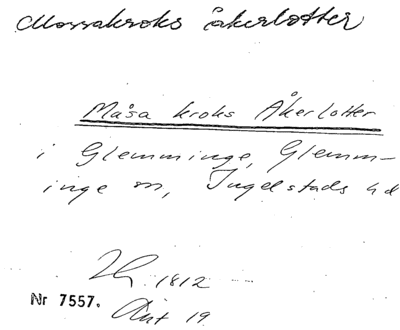 Mossakroks åkerlotter
Måsa kroks Åkerlotter
i Glemminge, Glemm-
inge sn, Ingelstads hd
1812
Nr 7557.
Akt 19